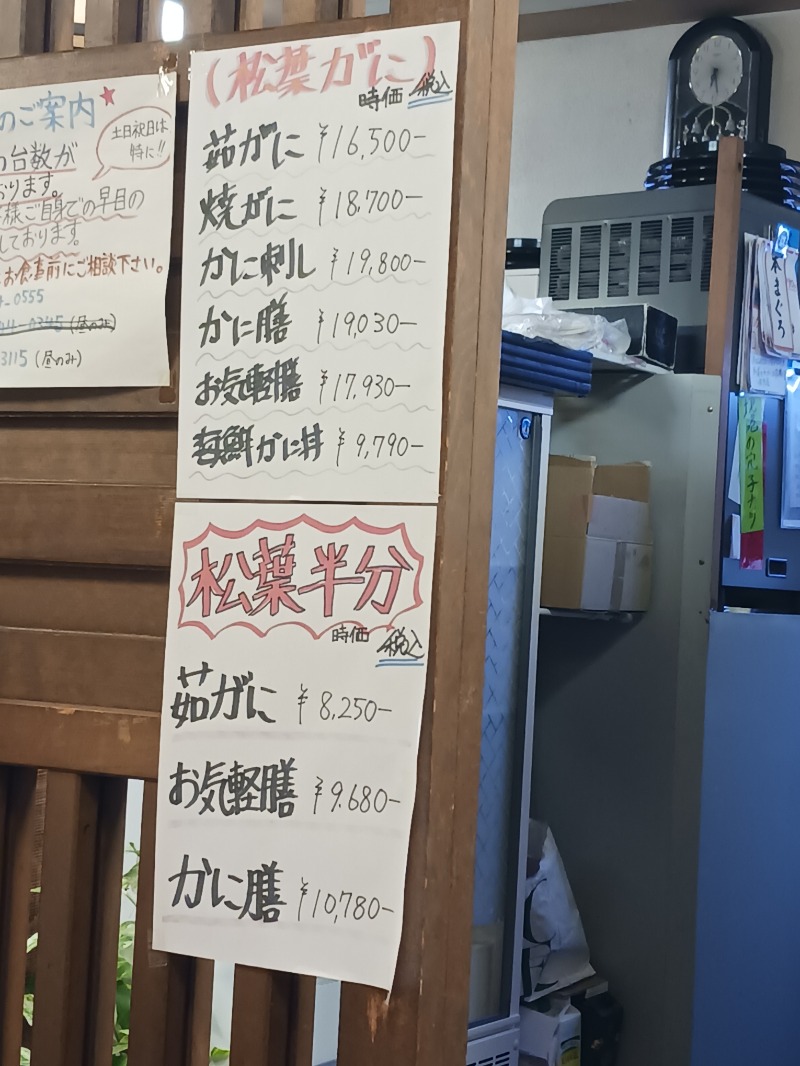 のご案内
土日祝日は
特に!!
の台数が
おります。
様ご自身での早目の
しております。
お食事前にご相談下さい。
-0555
44-0345 (昼のみ)
3115 (昼のみ)
(松葉がに)
時価 税込
茹がに ¥16,500-
焼がに ¥18,700-
かに刺し ¥19,800-
かに膳 ¥19,030-
お気軽膳 ¥17,930-
海鮮かに丼 ¥9,790-
松葉半分
時価 税込
茹がに ¥8,250-
お気軽膳 ¥9,680-
かに膳 ¥10,780-
本まぐろ
の穴子